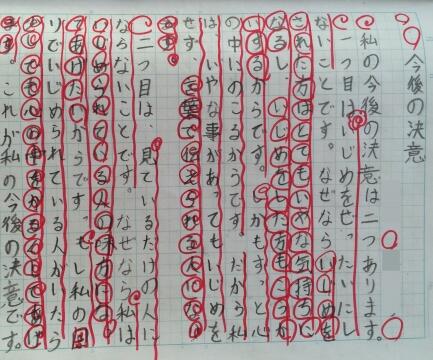 今後の決意
私の今後の決意は二つあります。
一つ目はいじめをぜったいにし
ないことです。なぜならいじめを
された方はとてもいやな気持ちに
なるし、いじめをした方も
するからです。しかもずっと心
の中にのこるからです。だから私
は、いやな事があってもいじめを
せず、言葉で伝えられる人にな
ます。
二つ目は、見ているだけの人に
ならないことです。なぜなら私は
いじめられている人の味方
てあげたいからです。もし私の周
りでいじめられている人がいたら
心の中をかるくしてあげ
ます。これが私の今後の決意です。